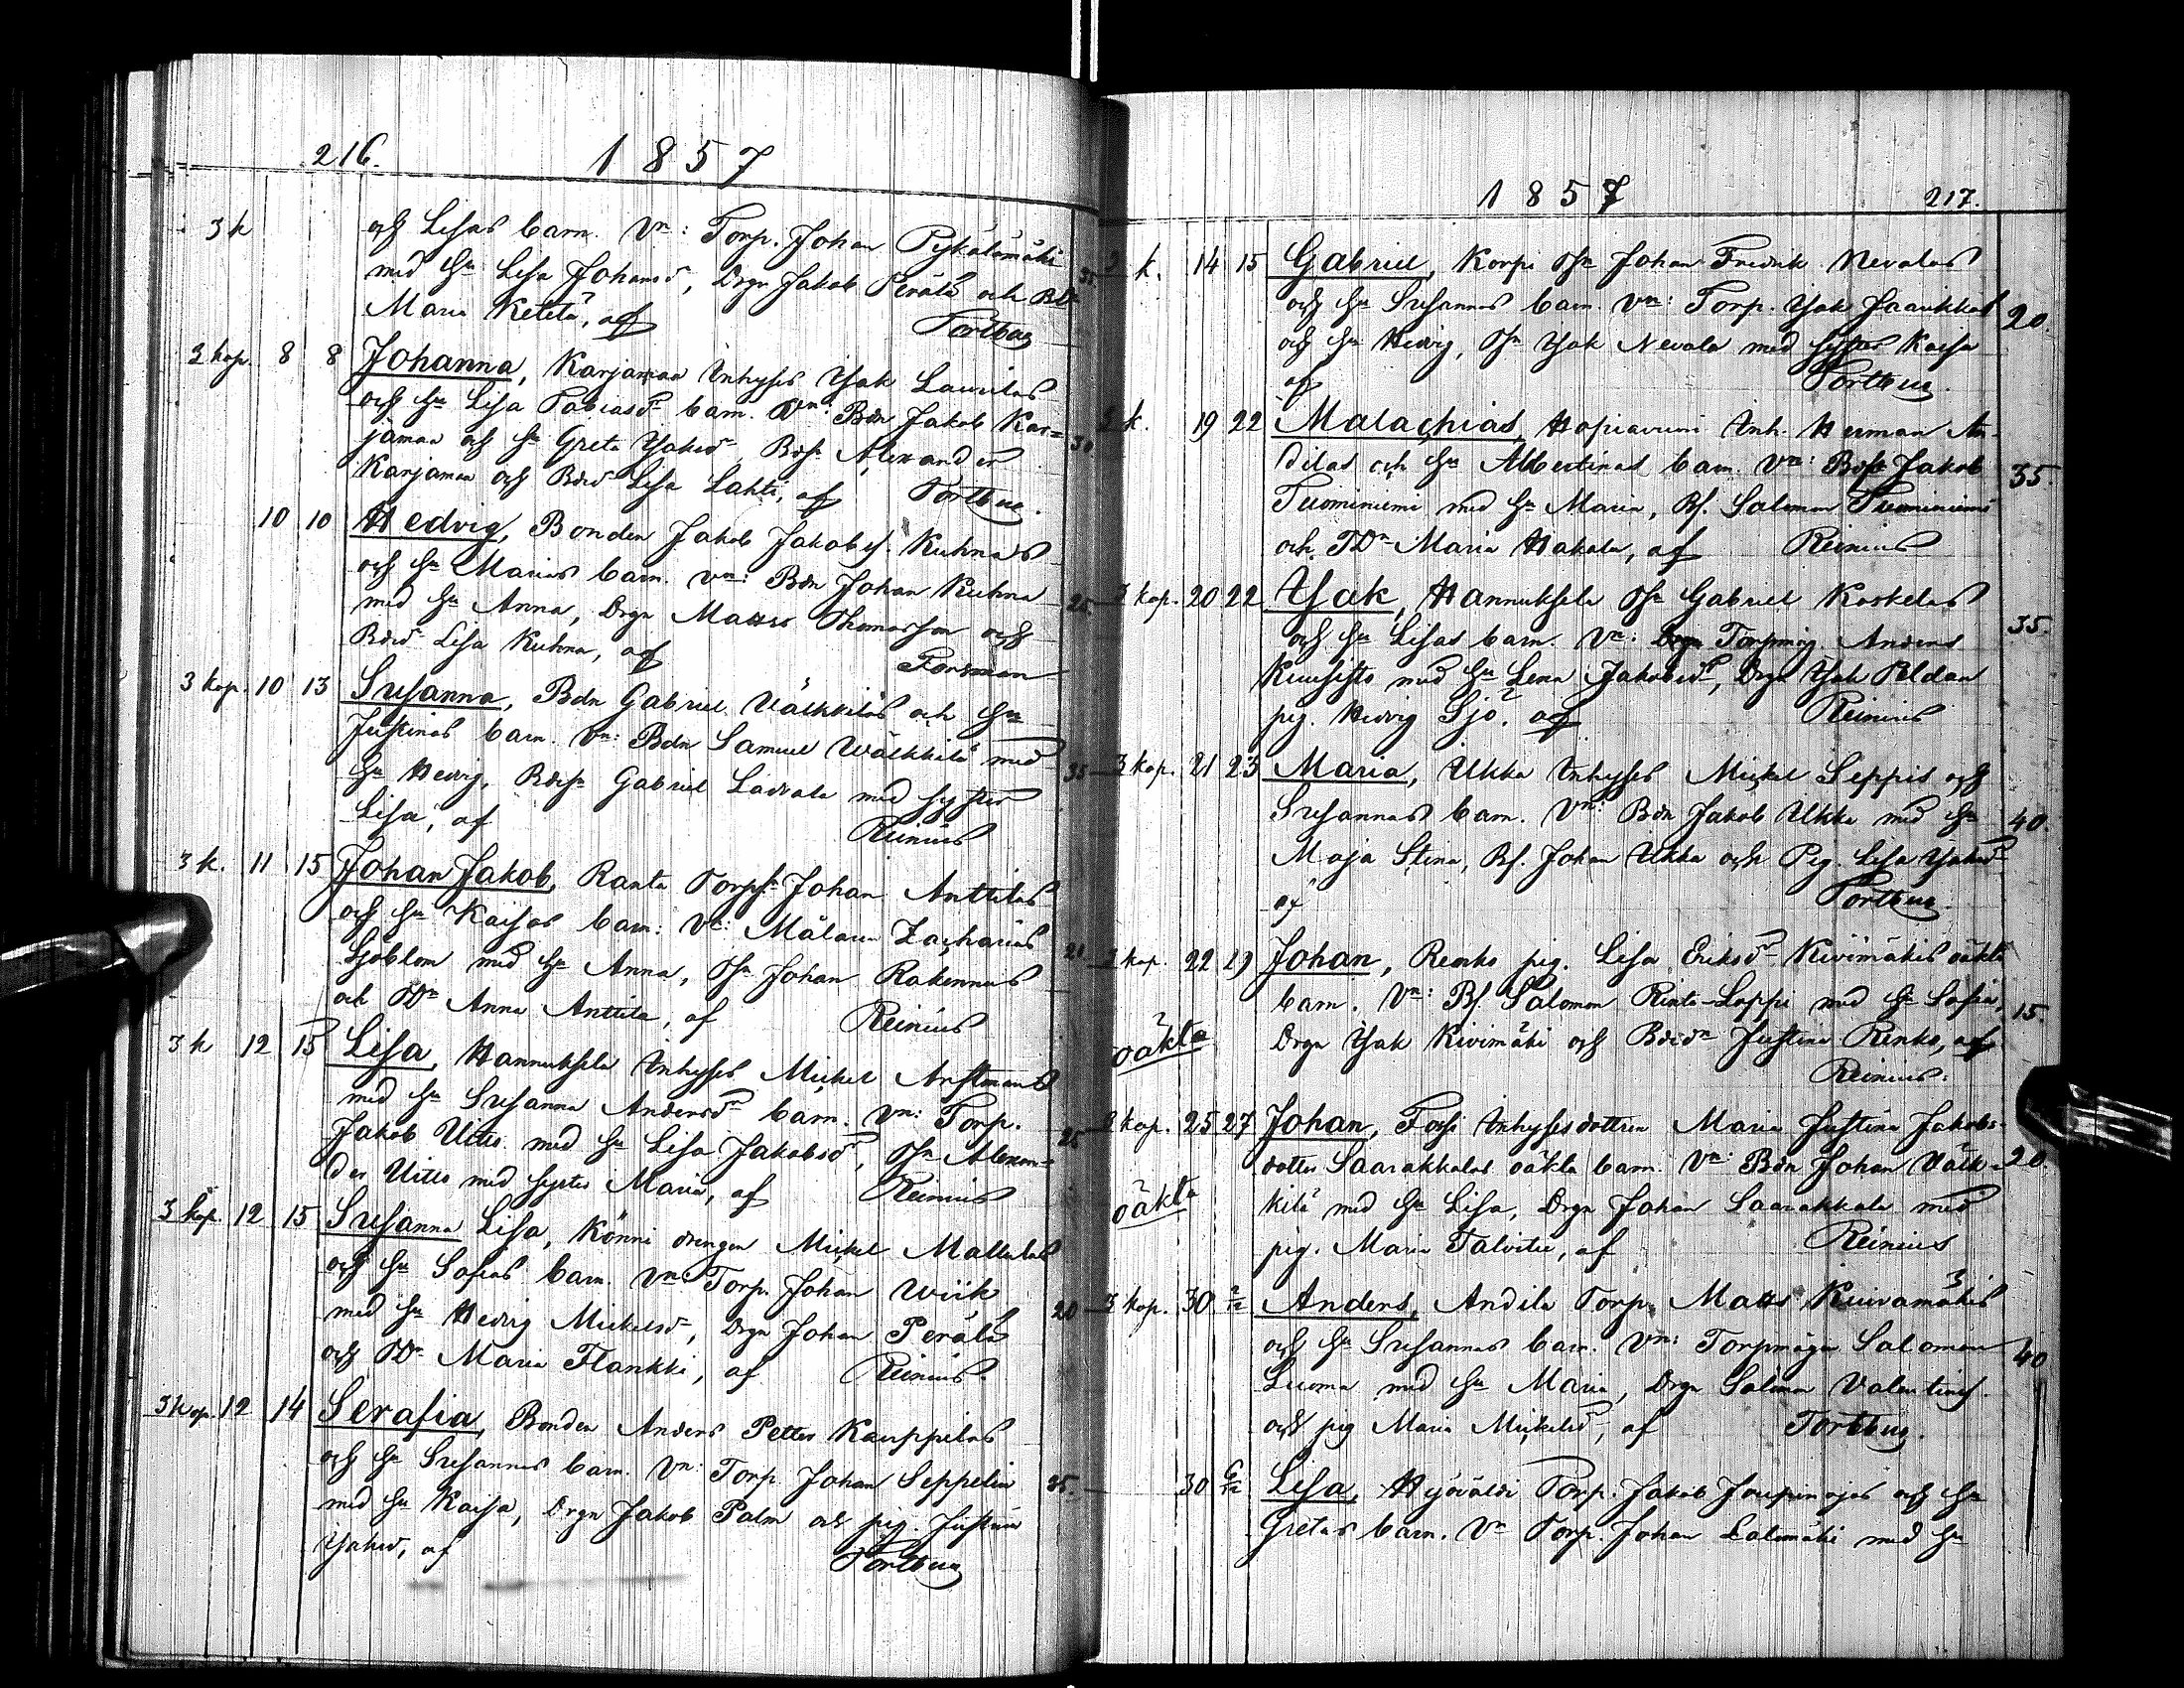 216.
1857
3 k
och Lisas barn. Vn: Torp. Johan Pykälämäki
med hu Lisa Johansd, Drgn Jakob Perälä och Bd
Maria Ketelä, af Portbug
35.
3 kop. 8 8 Johanna, Karjamaa Inhyses Isak Laurilas
och hu Lisa Tobiasdr barn. Vn: Bdn Jakob Kar=
jamaa och hu Greta Isaksdr, Bdsn Alexander
Karjamaa och Bdrd Lisa Lahti, af Portbug.
30.
10 10 Hedvig, Bonden Jakob Jakobss. Kuhnas
och hu Marias barn. Vn: Bdn Johan Kuhna
med hu Anna, Drgn Matts Thomasson och
Bdrd Lisa Kuhna, af Forsman
25.
3 kop. 10 13 Susanna, Bdn Gabriel Välkkiläs och hu
Justinas barn. Vn: Bdn Samuel Wälkkilä med
hu Hedvig, Bdsn Gabriel Ladvala med syster
Lisa, af Reinius
35
3 k. 11 15 Johan Jakob, Ranta Torpsn Johan Anttilas
och hu Kaisas barn: Vn: Målaren Zacharias
Sjöblom med hu Anna, TSn Johan Rakennus
och TDr Anna Anttila, af Reinius
21
3 k 12 15 Lisa, Hannuksela Inhyses Mickel Anstmans
med hu Susanna Andersdr barn. Vn: Torp.
Jakob Uitto med hu Lisa Jakobsdr, TSn Alexan=
der Uitto med syster Maria, af Reinius
25
3 kop. 12 15 Susanna Lisa, Könni drengen Mickel Mattilas
och hu Sofias barn. Vn: Torp. Johan Wiik
med hu Hedvig Mickelsdr, Drgn Johan Perälä
och TDr Maria Flankki, af Reinius.
20
3 kop. 12 14 Serafia, Bonden Anders Petter Kauppilas
och hu Susannas barn. Vn: Torp. Johan Seppelin
med hu Kaisa, Drgn Jakob Palm och pig. Justina
Isaksd, af Portbug
25.
1857
217.
3 k. 14 15 Gabriel, Korpi TSn Johan Fredrik Nevalas
och hu Susannas barn. Vn: Torp. Isak Jaakkas
och hu Hedvig, TSn Isak Nevala med syster Kaisa
af Portbug.
20.
3 k. 19 22 Malachias, Hopiavuori Inh. Herman An-
dilas och hu Albertinas barn. Vn: Bdsn Jakob
Tuominiemi med hu Maria, Bs. Salomon Tuominiemi
och TDr Maria Hakala, af Reinius
35.
3 kop. 20 22 Isak, Hannuksela TSn Gabriel Koskelas
och hu Lisas barn. Vn: Torpmåg Anders
Kuusisto med hu Lena Jakobsdr, Drgn Isak Peldan
pig. Hedvig Sjö. af Reinius
35.
3 kop. 21 23 Maria, Ukka Inhyses Mickel Seppis och
Susannas barn. Vn: Bdn Jakob Ukka med hu
Maja Stina, Bs. Johan Ukka och Pig. Lisa Isaksdr
af Portbug.
40.
3 kop. 22 29 Johan, Renko pig. Lisa Eriksdr Kivimäkis oäkta
barn. Vn: Bs. Salomon Rinta-Loppi med hu Sofia,
oäkta
Drgn Isak Kivimäki och Bdrdr Justina Renko, af
Reinius.
15.
3 kop. 25 27 Johan, Forsi Inhysesdottren Maria Justina Jakobs-
dotter Saarakkalas oäkta barn. Vn: Bdn Johan Välk-
oäkta
kilä med hu Lisa, Drgn Johan Saarakkala med
pig. Maria Talvitie, af Reinius
20.
3 kop. 30 2/12 Anders, Andila Torp. Matts Kuivamäkis
och hu Susannas barn. Vn: Torpmågen Salomon
Luoma med hu Maria, Drgn Salomon Valentinss.
och pig Maria Mickelsdr, af Portbug.
40
30 6/12 Lisa, Hyövälti Torp. Jakob Joupinojas och hu
Gretas barn. Vn Torp. Johan Lalimäki med hu